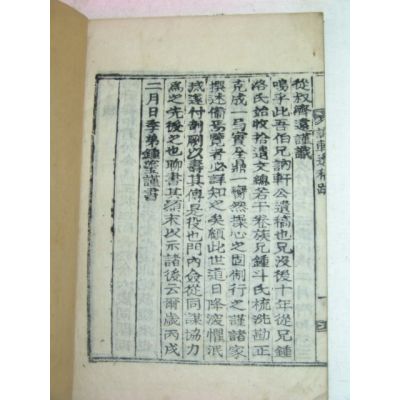 訥軒遺稿跋
從叔濟遠謹識
嗚乎此吾伯兄訥軒公遺稿也兄沒後十年從兄鍾
洛氏始收拾遺文編若干卷族兄鍾斗氏梳洗勘正
克成一弓實全鼎一臠然操心之固制行之謹諸家
撰述備焉覽者必詳知之矣顧此世道日降深懼泯
滅遂付剞劂以壽其傳是役也門內僉從同謀協力
爲之先後之也聊書其顚末以示諸後云爾歲丙戌
二月日季弟鍾謹書